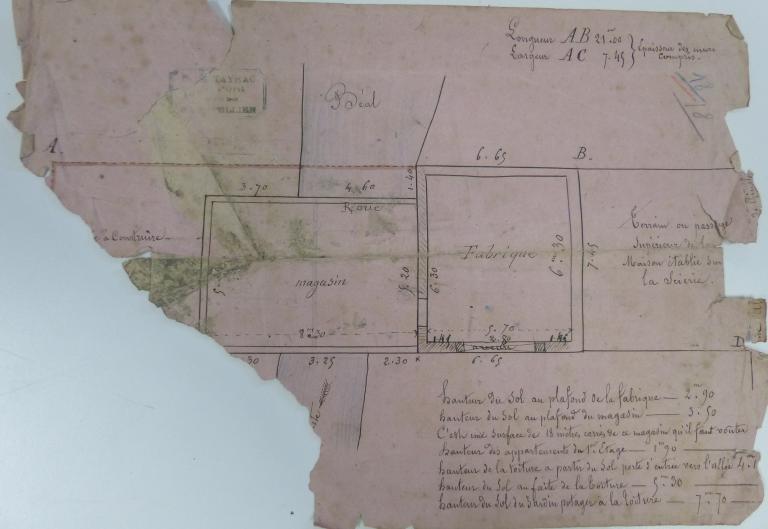 Longueur AB 21m00
Largeur AC 7.45
Epaisseur des murs
compris.
Béal
A.
6.65
B.
1.40
3.70
4.60
Roue
à Construire
Fabrique
6m30
7.45
magasin
5.20
6.30
Terrain ou passage
Supérieur de la
Maison établie sur
la Scierie.
8m30
5.70
2.80
1.45
1.45
30
3.25
2.30
6.65
D
hauteur du Sol au plafond de la fabrique — 2m90
hauteur du Sol au plafond du magasin — 3.50
C'est une surface de 18 mètres carrés de ce magasin qu'il faut voûter
hauteur des appartements du 1er Etage — 1m90
hauteur de la toiture a partir du Sol porte d'entrée vers l'allée 4m
hauteur du Sol au faîte de la toiture — 5m30
hauteur du Sol du Jardin potager à la toiture — 7m70